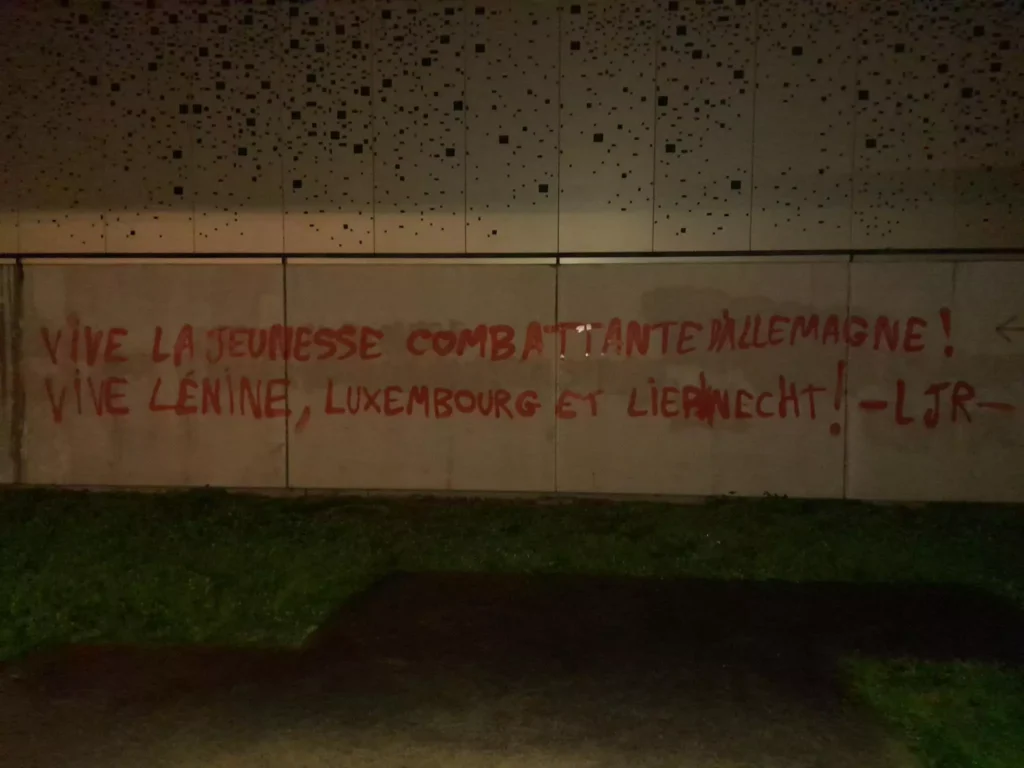 VIVE LA JEUNESSE COMBATTANTE D'ALLEMAGNE !
VIVE LÉNINE, LUXEMBOURG ET LIEBKNECHT ! - LJR -